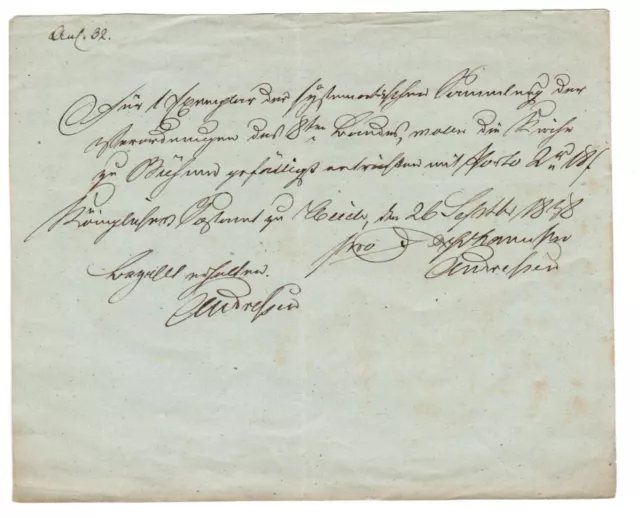 Anl. 32.
Für 1 Exemplar der systematischen Sammlung der
Verordnungen des 8ten Bandes, wolle die Kirche
zu Büsum gefälligst entrichten mit Porto
Königliches Postamt zu Heide, den 26 Septbr 1848
pro
Andresen
bezahlt erhalten.
Andresen